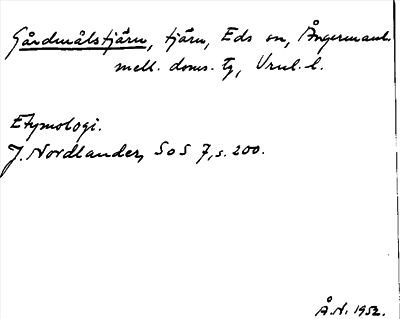 Gårdmålstjärn, tjärn, Eds sn, Ångermanl.
mell. doms. tg, Vrnl. l.
Etymologi.
J. Nordlander, SoS 7, s. 200.
Å.N. 1952.